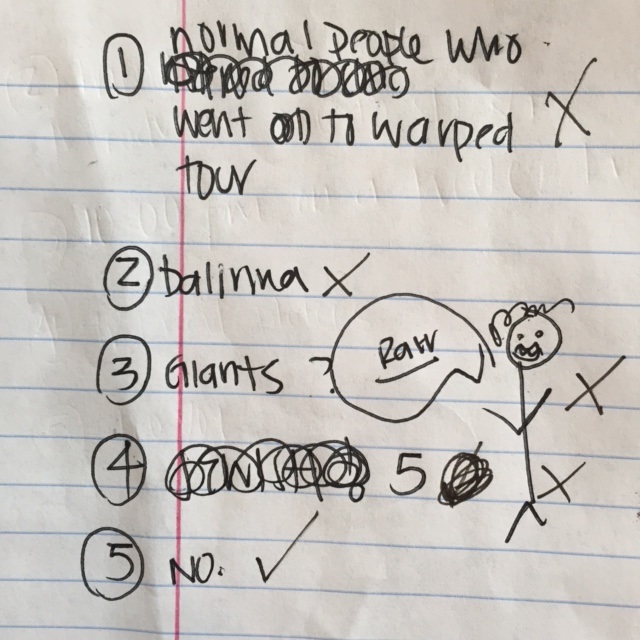 ① normal people who
went on to warped X
tour
② balinna X
③ Giants ? Rawr X
④ 5 X
⑤ NO. ✓